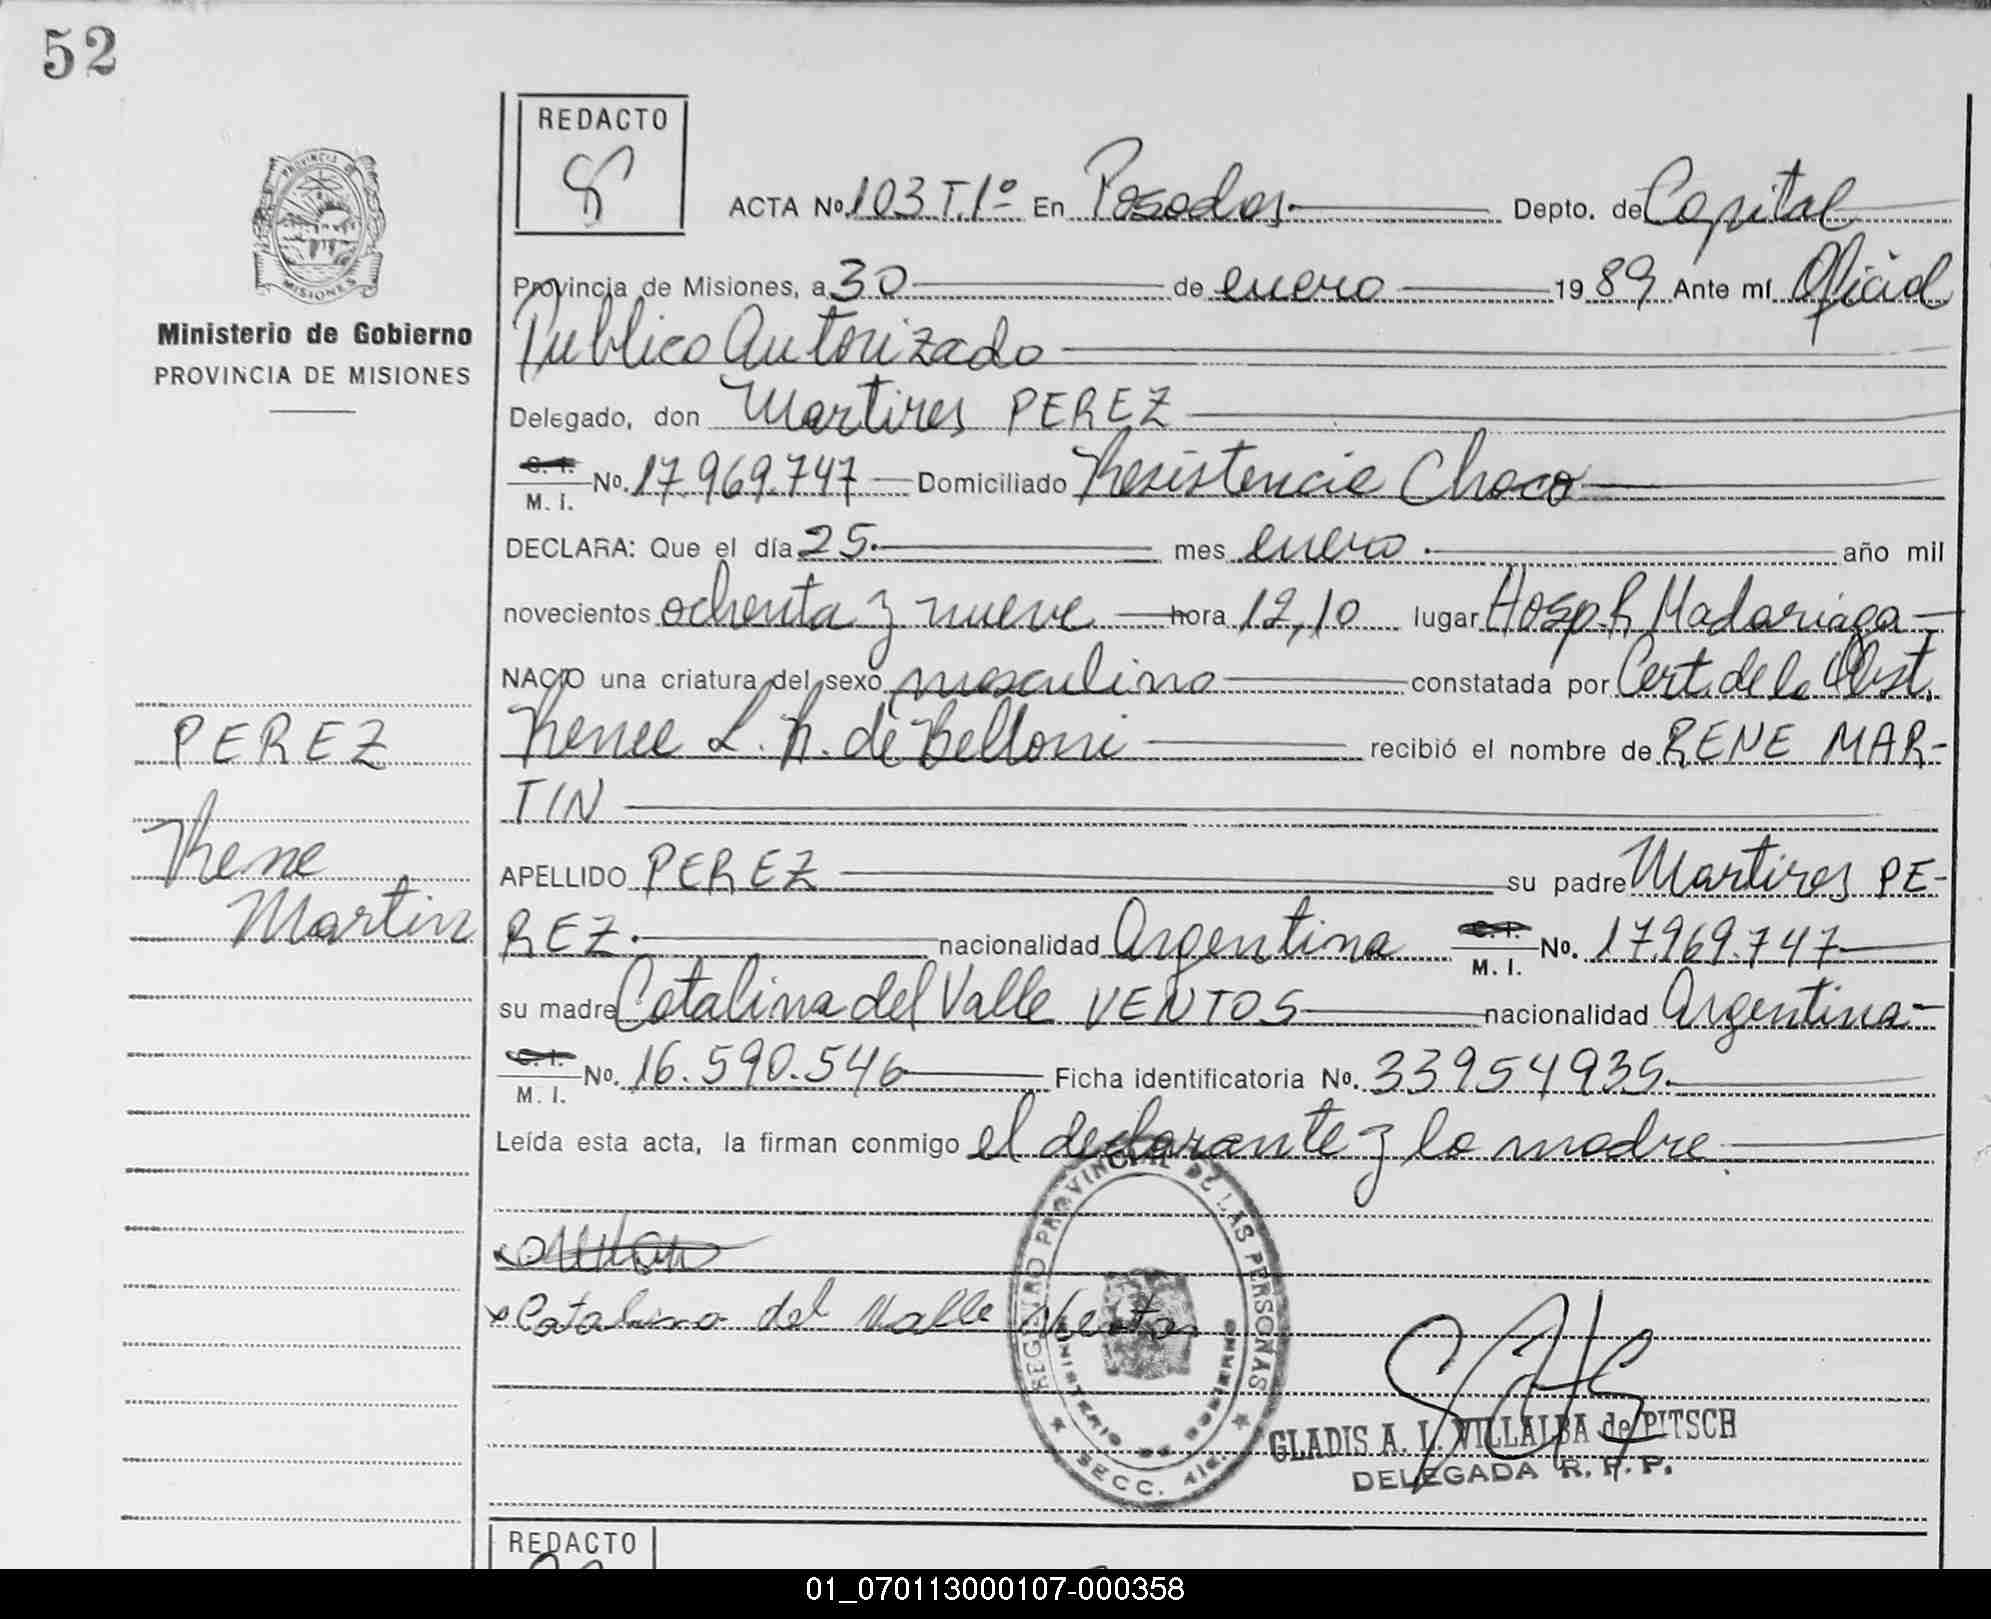 52
PROVINCIA DE
MISIONES
Ministerio de Gobierno
PROVINCIA DE MISIONES
PEREZ
Rene
Martin
REDACTO
ACTA No. 103 T.1º En Posadas Depto. de Capital
Provincia de Misiones, a 30 de enero 1989 Ante mí Oficial
Publico Autorizado
Delegado, don Martires PEREZ
C. I.
M. I. No. 17.969.747 Domiciliado Resistencia Chaco
DECLARA: Que el día 25 mes enero año mil
novecientos ochenta y nueve hora 12,10 lugar Hosp. R Madariaga
NACIO una criatura del sexo masculino constatada por Cert. de la Obst.
Renee L. R. de Belloni recibió el nombre de RENE MAR-
TIN
APELLIDO PEREZ su padre Martires PE-
REZ nacionalidad Argentina C. I. M. I. No. 17.969.747
su madre Catalina del Valle VENTOS nacionalidad Argentina
C. I.
M. I. No. 16.590.546 Ficha identificatoria No. 33954935
Leída esta acta, la firman conmigo el declarante y la madre
Catalina del Valle Ventos
REGISTRO PROVINCIAL DE LAS PERSONAS
MINISTERIO DE GOBIERNO
SECC. 
GLADIS A. I. VILLALBA de PITSCH
DELEGADA R. P. P.
REDACTO
01_070113000107-000358